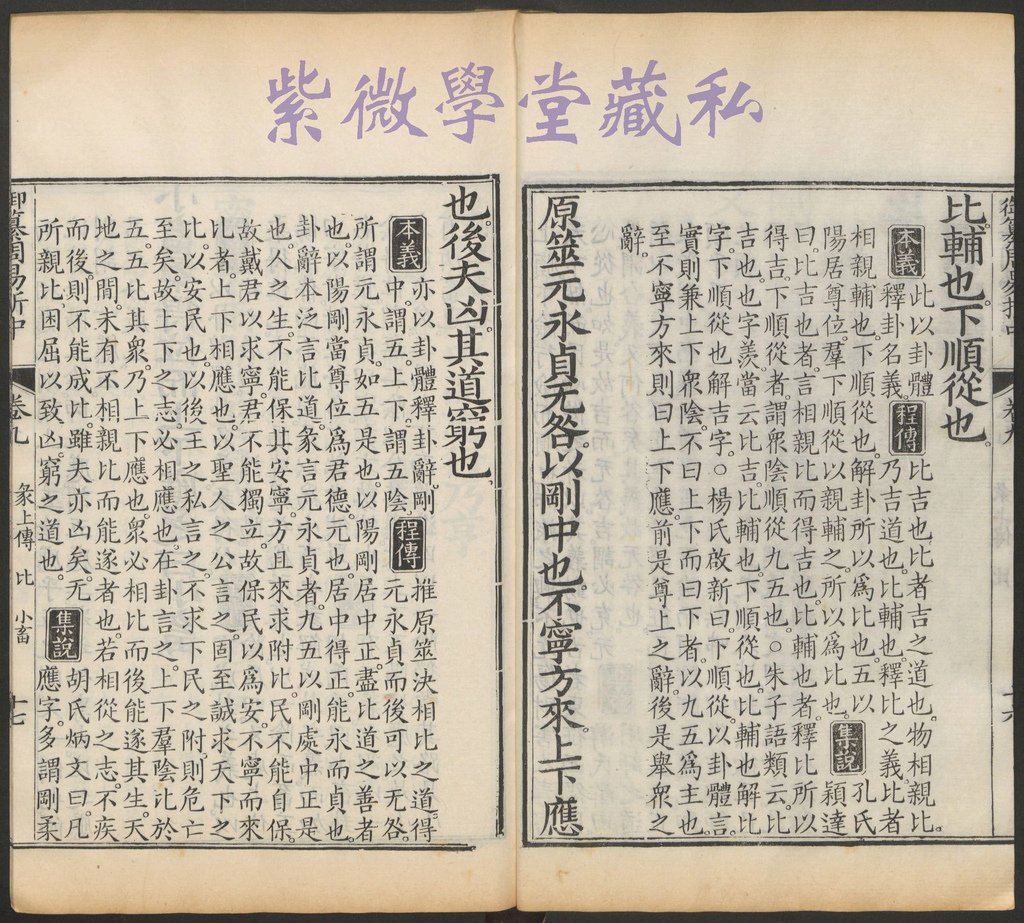 紫微學堂藏私
比輔也下順從也
本義
此以卦體
釋卦名義
程傳
比吉也比者吉之道也物相親比
乃吉道也比輔也釋比之義比者
相親輔也下順從也解卦所以爲比也五以
陽居尊位羣下順從以親輔之所以爲比也
集說
孔氏
穎達
曰比吉也者言相親比而得吉也比輔也者釋比所以
得吉下順從者謂眾陰順從九五也○朱子語類云比
吉也也字羨當云比吉比輔也下順從也比輔也解比
字下順從也解吉字○楊氏啟新曰下順從以卦體言
實則兼上下眾陰不曰上下而曰下者以九五爲主也
至不寧方來則曰上下應前是尊上之辭後是舉眾之
辭
原筮元永貞无咎以剛中也不寧方來上下應
也後夫凶其道窮也
本義
亦以卦體釋卦辭剛
中謂五上下謂五陰
程傳
推原筮決相比之道得
元永貞而後可以无咎
所謂元永貞如五是也以陽剛居中正盡比道之善者
也以陽剛當尊位爲君德元也居中得正能永而貞也
卦辭本泛言比道彖言元永貞者九五以剛處中正是
也人之生不能保其安寧方且來求附比民不能自保
故戴君以求寧君不能獨立故保民以爲安不寧而來
比者上下相應也以聖人之公言之固至誠求天下之
比以安民也以後王之私言之不求下民之附則危亡
至矣故上下之志必相應也在卦言之上下羣陰比於
五五比其眾乃上下應也眾必相比而後能遂其生天
地之間未有不相親比而能遂者也若相從之志不疾
而後則不能成比雖夫亦凶矣无
所親比困屈以致凶窮之道也
集說
胡氏炳文曰凡
應字多謂剛柔
御纂周易折中 卷九 彖上傳 比 小畜 十七